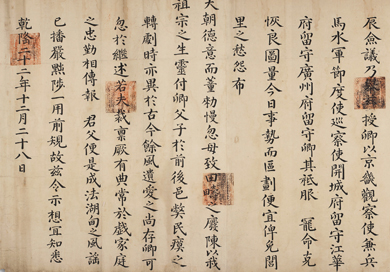 辰僉議乃▢▢授卿以京畿觀察使兼兵
馬水軍節度使巡察使開城府留守江華
府留守廣州府留守卿其祗服 寵命克
恢良圖量今日事勢而區劃便宜俾免閭
里之愁怨布
大朝德意而董勅慢忽毋致田疇之廢陳以我
祖宗之生靈付卿父子於前後邑獘民瘼之
轉劇時亦異於古今餘風遺愛之尚存卿可
忽於繼述若夫裁稟厥有曲常於戲家庭
之忠勤相傳報 君父便是成法湖甸之風謠
已播嚴黜陟一用前規故玆令示想宜知悉
乾隆二十二年十二月二十八日